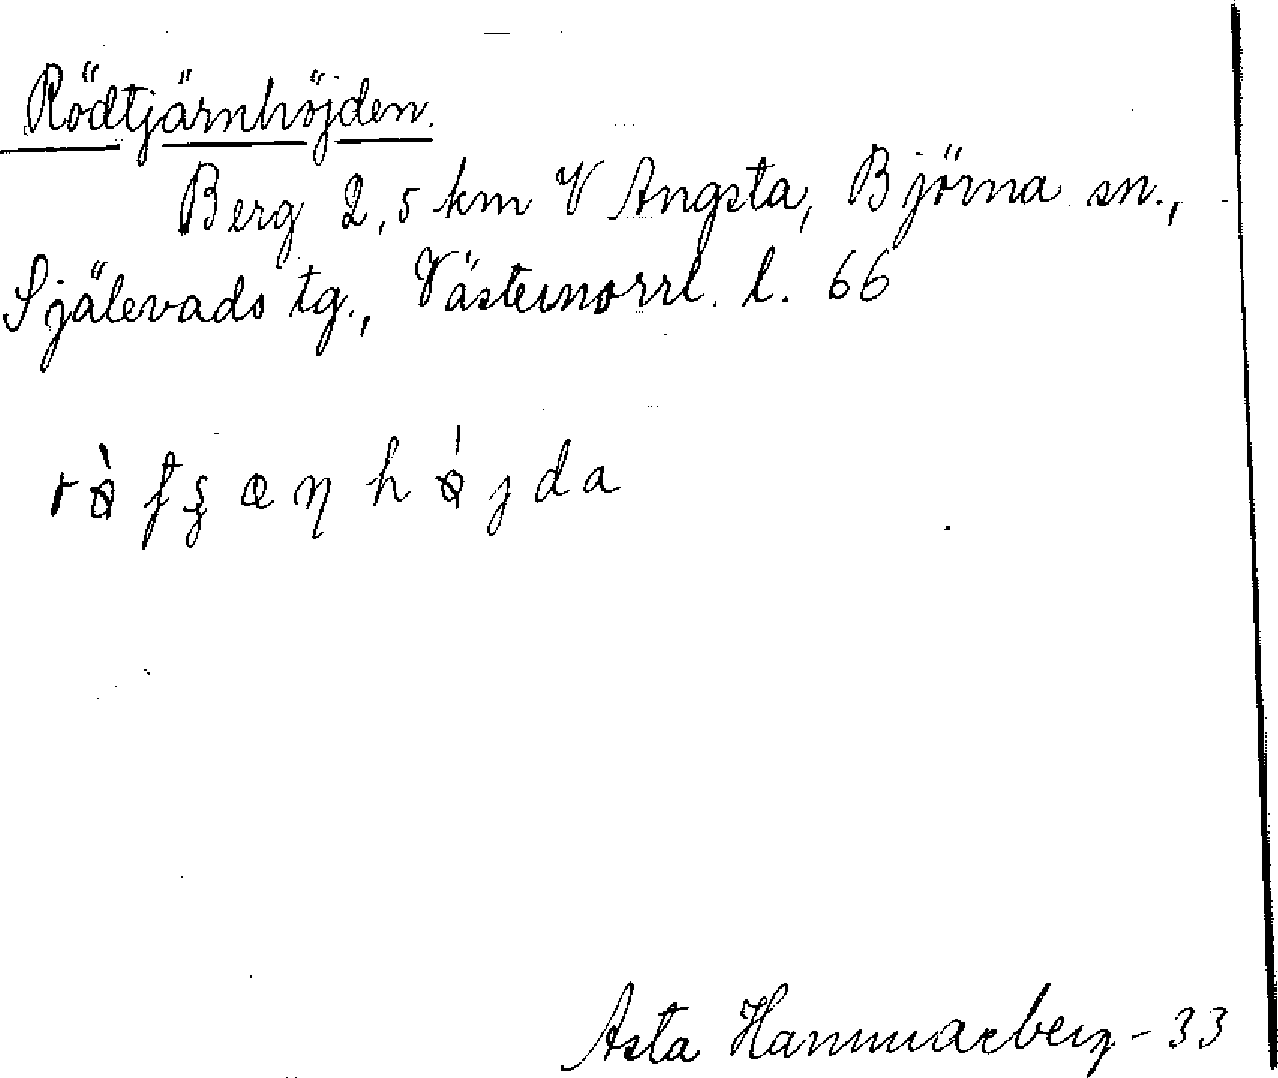 Rödtjärnhöjden.
Berg 2,5 km V Angsta, Björna sn.,
Själevads tg., Västernorrl. l. 66
Asta Hammarberg - 33